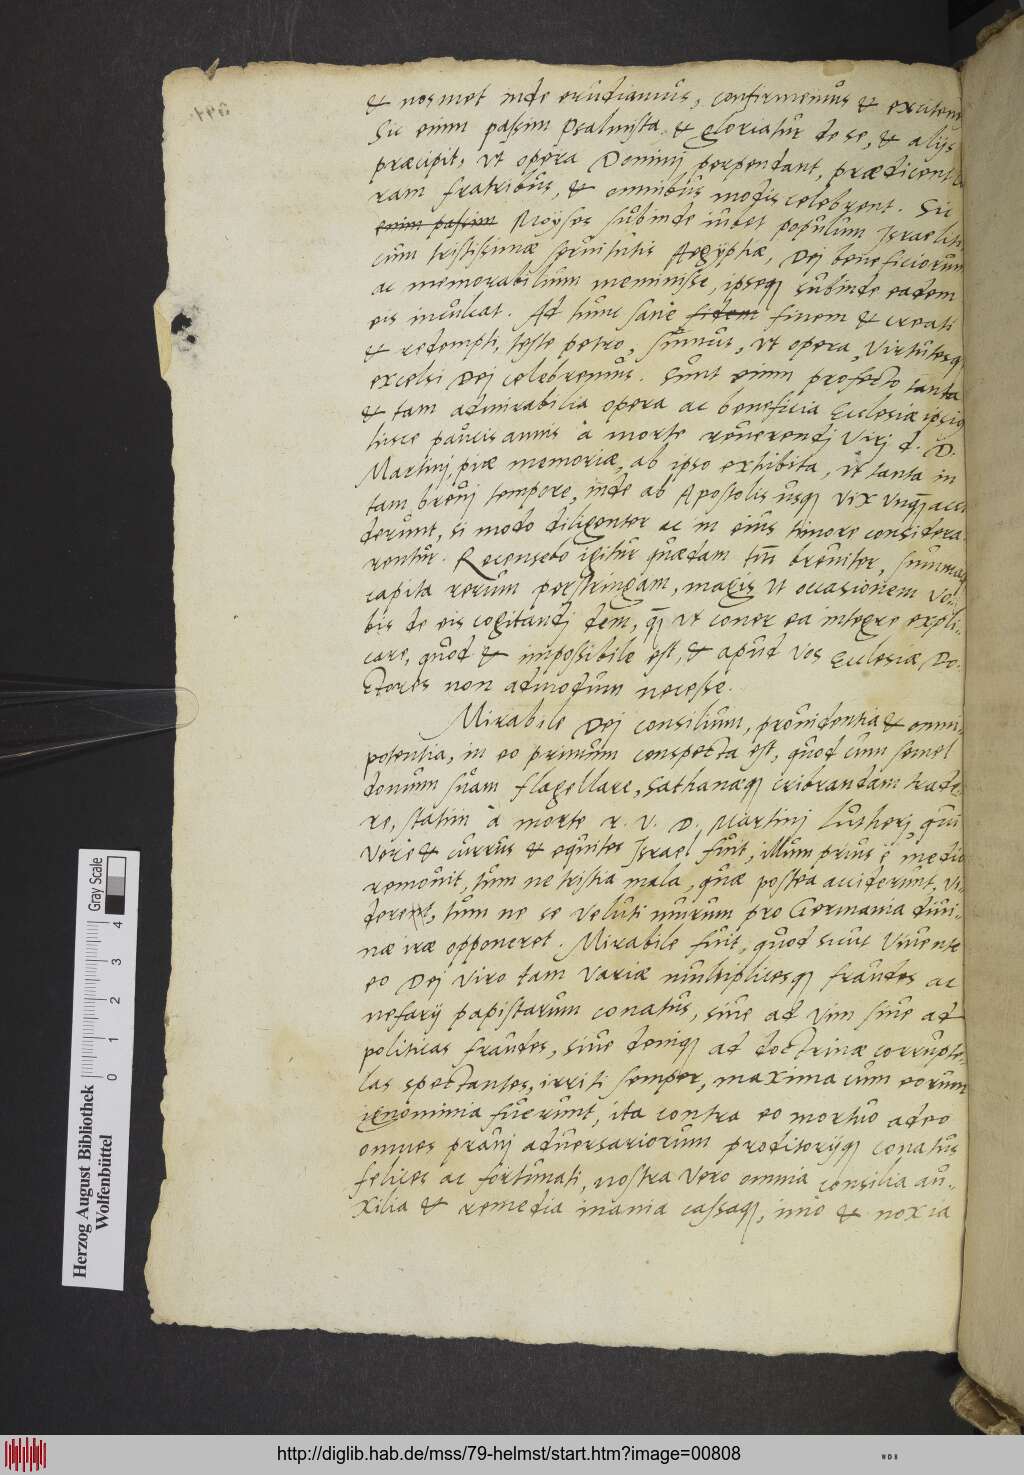 & nosmet inde erudiamus, confirmemus & excitem
Sic enim passim Psalmista & gloriatur de se, & alijs
præcipit, vt opera Dominj perpendant, prædicent
ram fratribus, & omnibus modis celebrent. Sic
enim passim Moyses subinde iubet populum Israeliti
cum tristissimæ seruitutis Aegyptiæ, Dej beneficiorum
ac memorabilium meminisse, ipseq subinde eadem
eis inculcat. Ad hunc sane fidem finem & creati
& redempti, teste petro, sumus, vt opera, virtutesq
excelsi Dej celebremus. Sunt enim profecto tanta
& tam admirabilia opera ac beneficia Ecclesiæ ipsiq
hisce paucis annis à morte reuerendj Virj d. D.
Martinj, piæ memoriæ, ab ipso exhibita, vt tanta in
tam breuj tempore, inde ab Apostolis usq vix vnq acci
derunt, si modo diligenter ac in eius timore considera
rentur. Recensebo igitur quædam tm breuiter, summaq
capita rerum perstringam, magis vt occasionem vo
bis de eis cogitandj dem, q vt coner ea integre expli-
care, quod & impossibile est, & apud vos Ecclesiæ Do-
ctores non admodum necesse.
Mirabile Dej consilium, prouidentia & omni-
potentia, in eo primum conspecta est, quod cum semel
domum suam flagellare, Sathanæq cribrandam trade-
re, statim à morte r. V. D. Martinj Lutherj, qui
vere & currus & equites Israel fuit, illum prius è medio
remouit, tum ne tristia mala, quæ postea acciderunt, vi
deret, tum ne se veluti murum pro Germania diui-
næ iræ opponeret. Mirabile fuit, quod sicut viuente
eo Dej viro tam variæ multiplicesq fraudes ac
nefarij papistarum conatus, siue ad vim siue ad
politicas fraudes, siue deniq ad doctrinæ corrupte-
las spectantes, irriti semper, maxima cum eorum
ignominia fuerunt, ita contra eo mortuo adeo
omnes prauj aduersariorum proditorijq conatus
felices ac fortunati, nostra vero omnia consilia au-
xilia & remedia inania cassaq, imò & noxia
Gray Scale
0 1 2 3 4
Herzog August Bibliothek
Wolfenbüttel
http://diglib.hab.de/mss/79-helmst/start.htm?image=00808